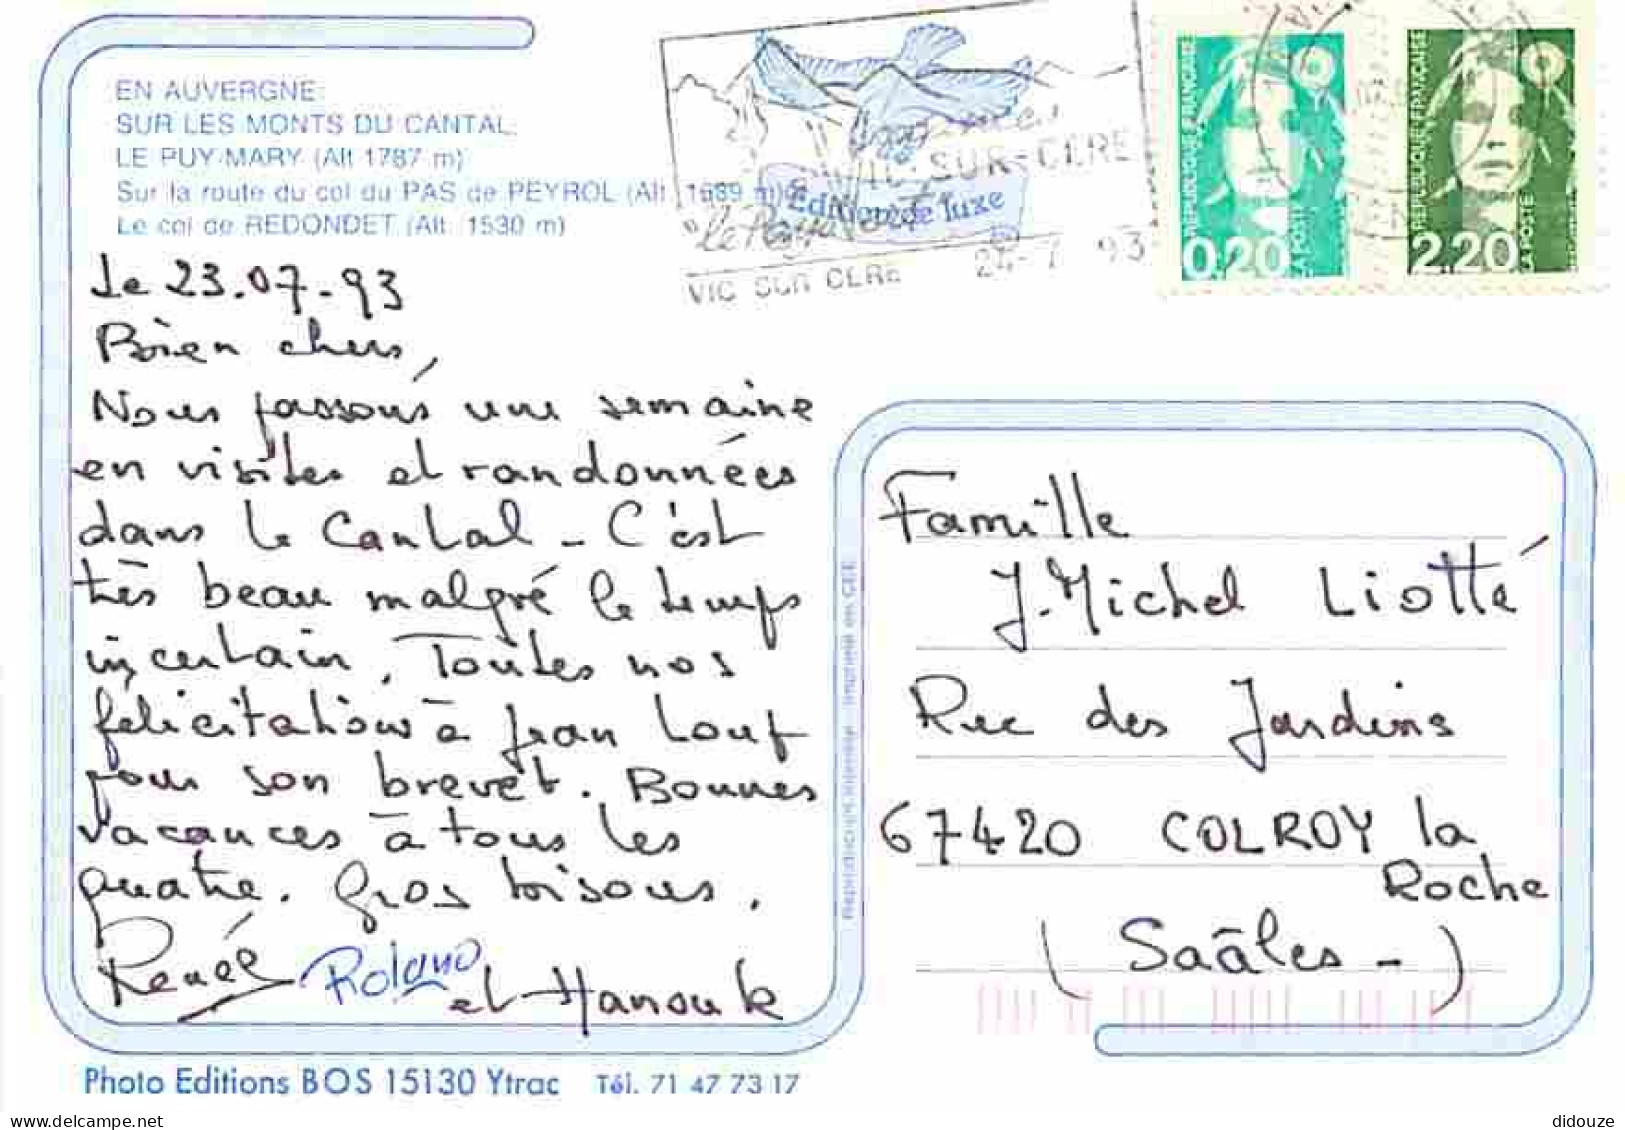 EN AUVERGNE
SUR LES MONTS DU CANTAL
LE PUY-MARY (Alt 1787 m)
Sur la route du col du PAS de PEYROL (Alt. 1589 m)
Le col de REDONDET (Alt. 1530 m)
VIC-SUR-CERE
Editions de luxe
"Le Pays Vert"
VIC SUR CERE 24-7 93
REPUBLIQUE FRANÇAISE
0,20
LA POSTE
REPUBLIQUE FRANÇAISE
2,20
LA POSTE
Le 23.07-93
Bien chers,
Nous passons une semaine
en visites et randonnées
dans le Cantal - C'est
très beau malgré le temps
incertain. Toutes nos
félicitations à Jean Loup
pour son brevet. Bonnes
vacances à tous les
quatre. Gros bisous.
Renée Roland
et Hanouk
Reproduction interdite - Imprimé en CEE
Famille
J.Michel Liotté
Rue des Jardins
67420 COLROY la
Roche
(Saâles -)
Photo Editions BOS 15130 Ytrac Tél. 71 47 73 17
didouze